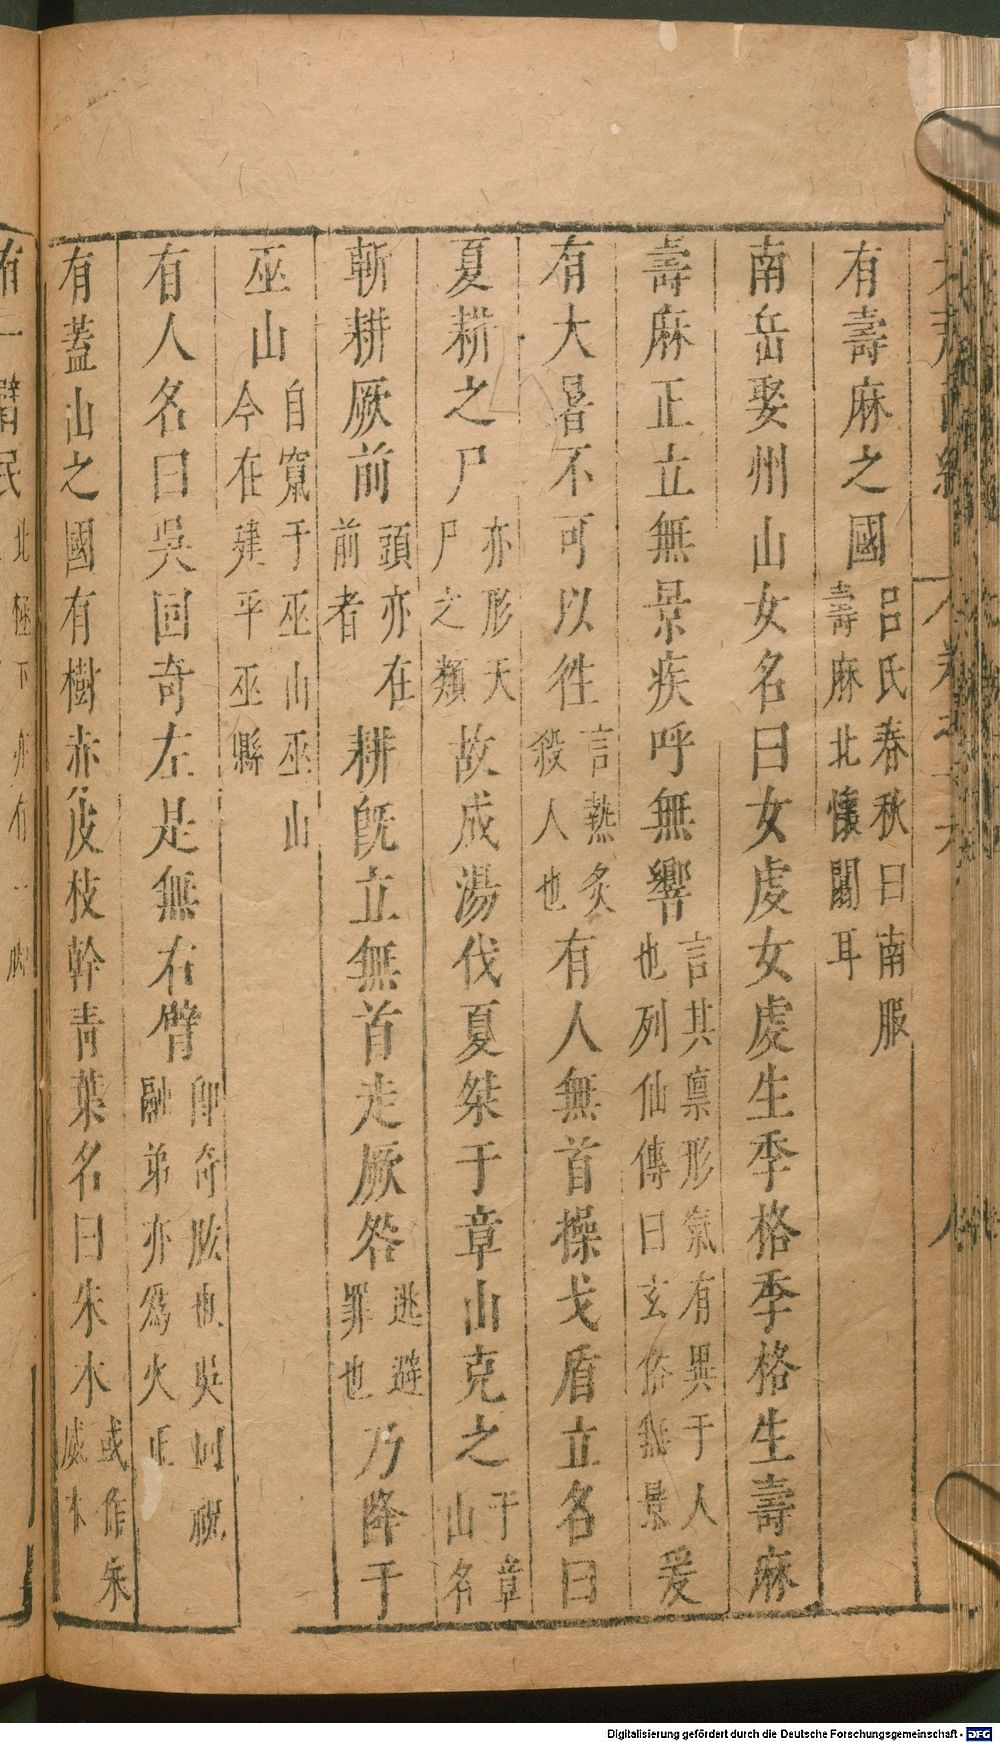 有壽麻之國呂氏春秋曰南服壽麻北懷闒耳
南岳娶州山女名曰女䖍女䖍生季格季格生壽麻
壽麻正立無景疾呼無響言其禀形氣有異于人也列仙傳曰玄俗無景爰
有大暑不可以徃言熱炙殺人也有人無首操戈盾立名曰
夏耕之尸亦形天尸之類故成湯伐夏桀于章山克之于章山名
斬耕厥前頭亦在前者耕旣立無首走厥咎逃避罪也乃降于
巫山自竄于巫山巫山今在建平巫縣
有人名曰吳回奇左是無右臂卽奇肱也吳回祝融弟亦爲火正
有蓋山之國有樹赤皮枝幹靑葉名曰朱木或作朱威木
有一臂民北極下亦有一脚
Digitalisierung gefördert durch die Deutsche Forschungsgemeinschaft - DFG